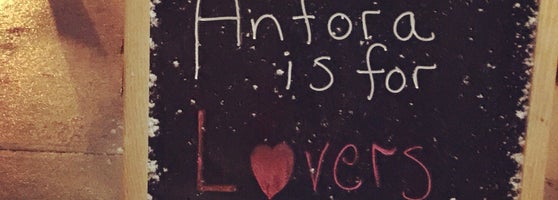 Antora
is for
Lovers